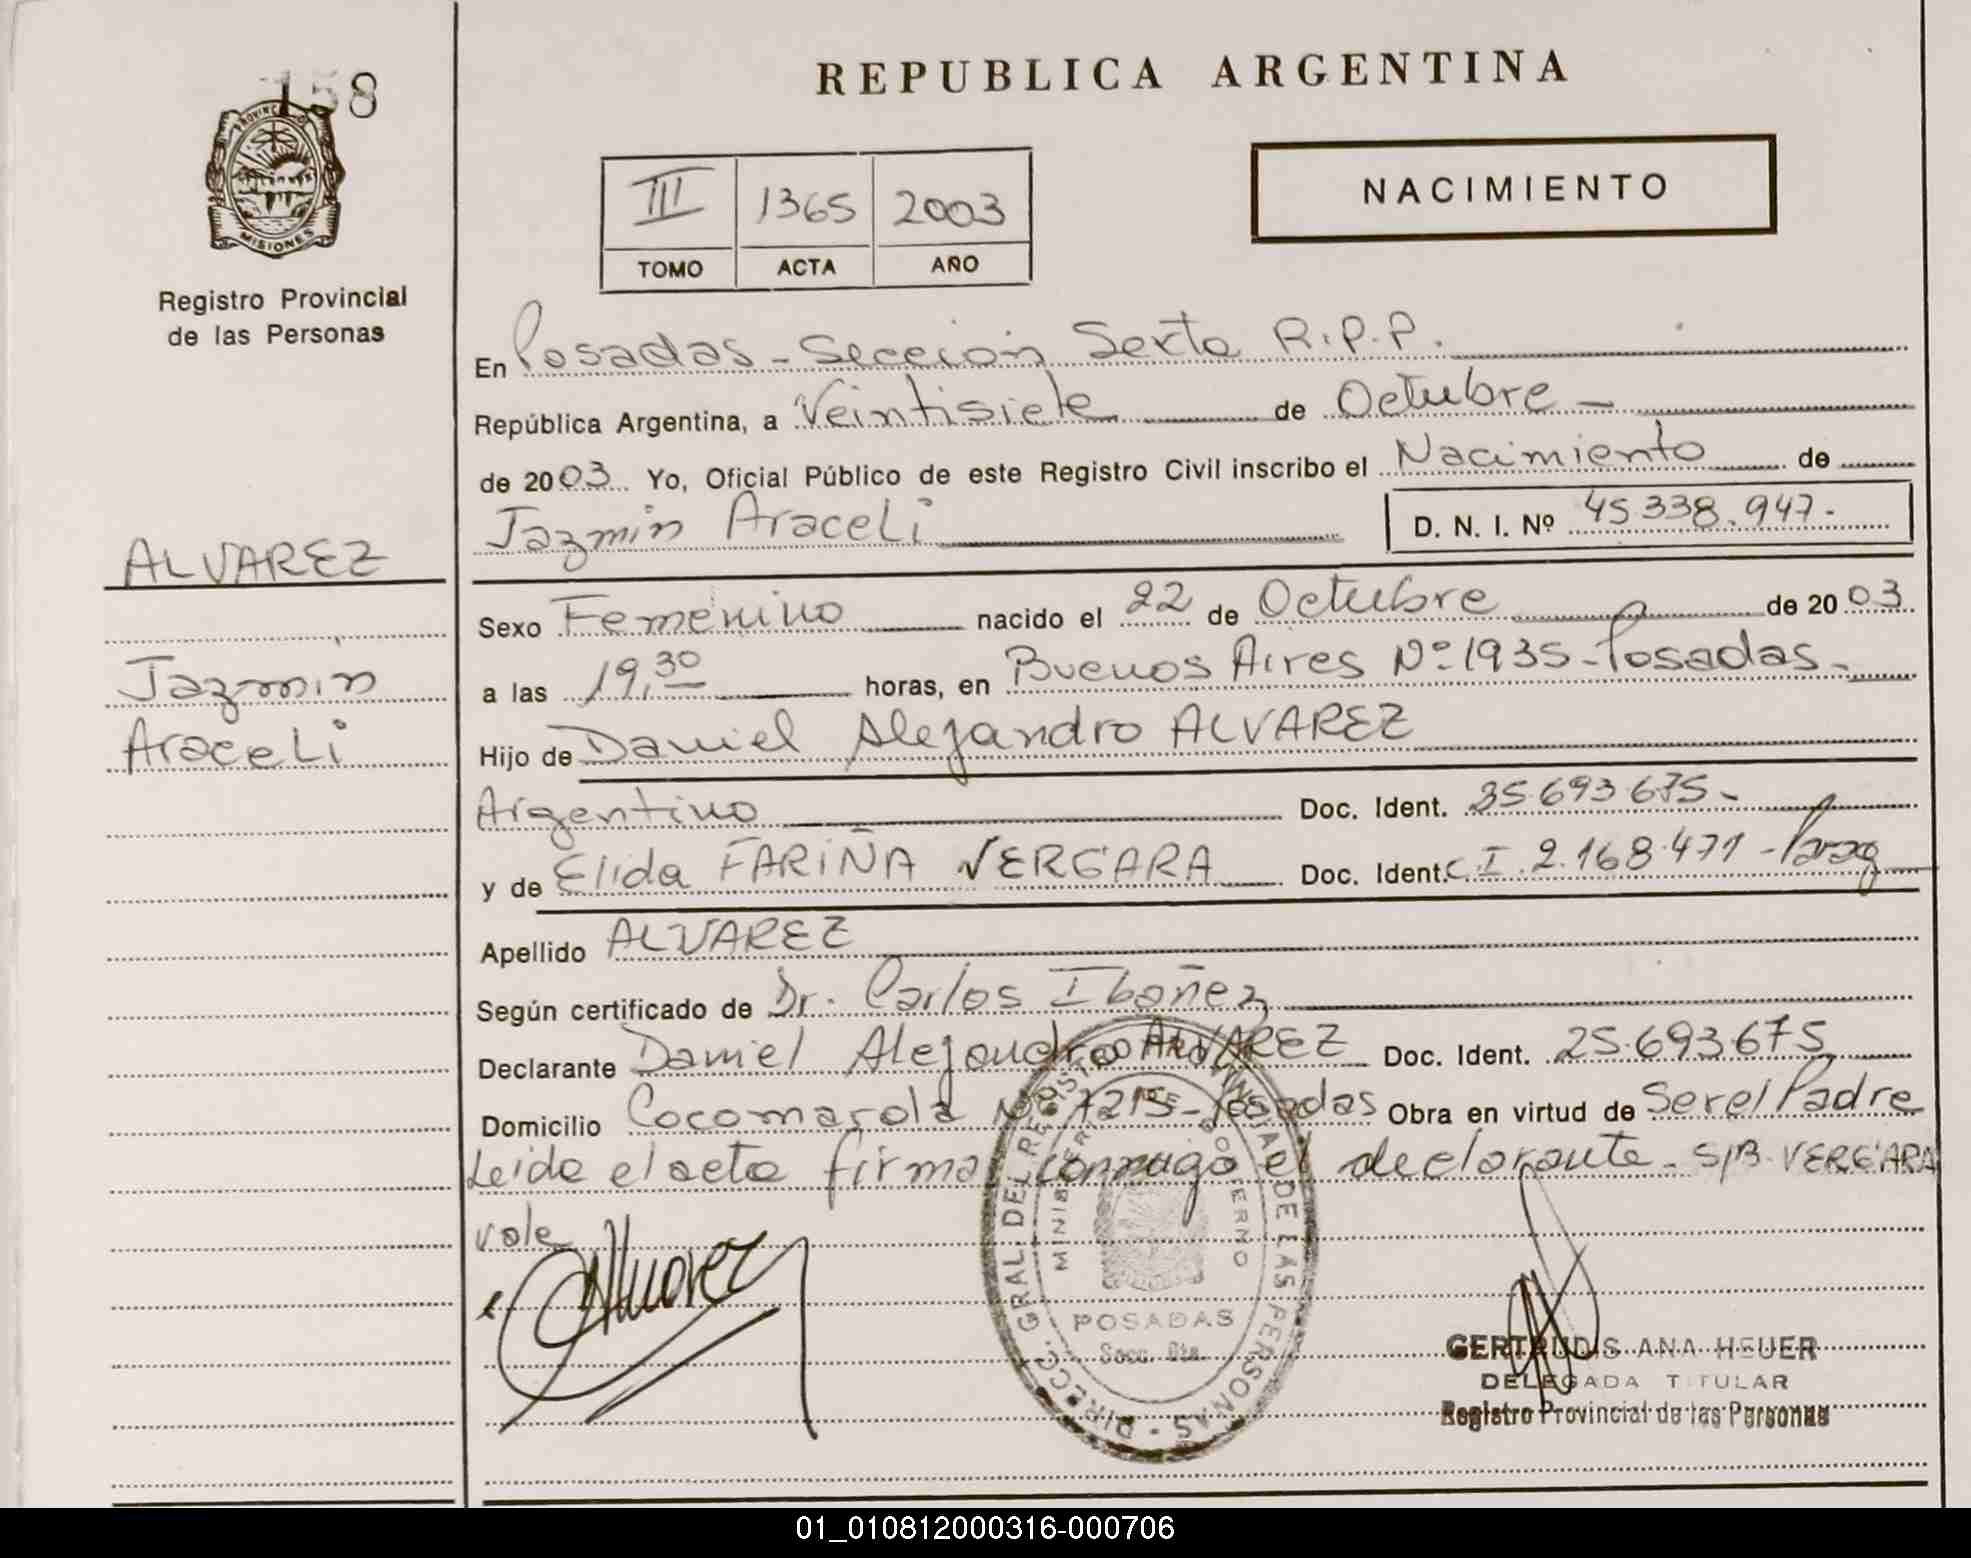 158
PROVINCIA DE
MISIONES
Registro Provincial
de las Personas
REPUBLICA ARGENTINA
III 1365 2003
TOMO ACTA AÑO
NACIMIENTO
En Posadas - Sección Sexta R.P.P.
República Argentina, a Veintisiete de Octubre -
de 2003 Yo, Oficial Público de este Registro Civil inscribo el Nacimiento de
Jazmin Araceli D. N. I. Nº 45338.947.-
ALVAREZ
Jazmin
Araceli
Sexo Femenino nacido el 22 de Octubre de 2003
a las 19,30 horas, en Buenos Aires Nº 1935 - Posadas -
Hijo de Daniel Alejandro ALVAREZ
Argentino Doc. Ident. 25.693.675 -
y de Elida FARIÑA VERGARA Doc. Ident. C.I 2.168.471 - Parag
Apellido ALVAREZ
Según certificado de Dr. Carlos Ibañez
Declarante Daniel Alejandro ALVAREZ Doc. Ident. 25.693.675
Domicilio Cocomarola Nº 7215 - Posadas Obra en virtud de Ser el Padre
Leida el acta firma conmigo el declarante - S/B VERGARA
vale
Alvarez
DIRECC. GRAL. DEL REGISTRO PROVINCIAL DE LAS PERSONAS
MINISTERIO DE GOBIERNO
POSADAS
Secc. 6ta.
GERTRUDIS ANA HEUER
DELEGADA TITULAR
Registro Provincial de las Personas
01_010812000316-000706